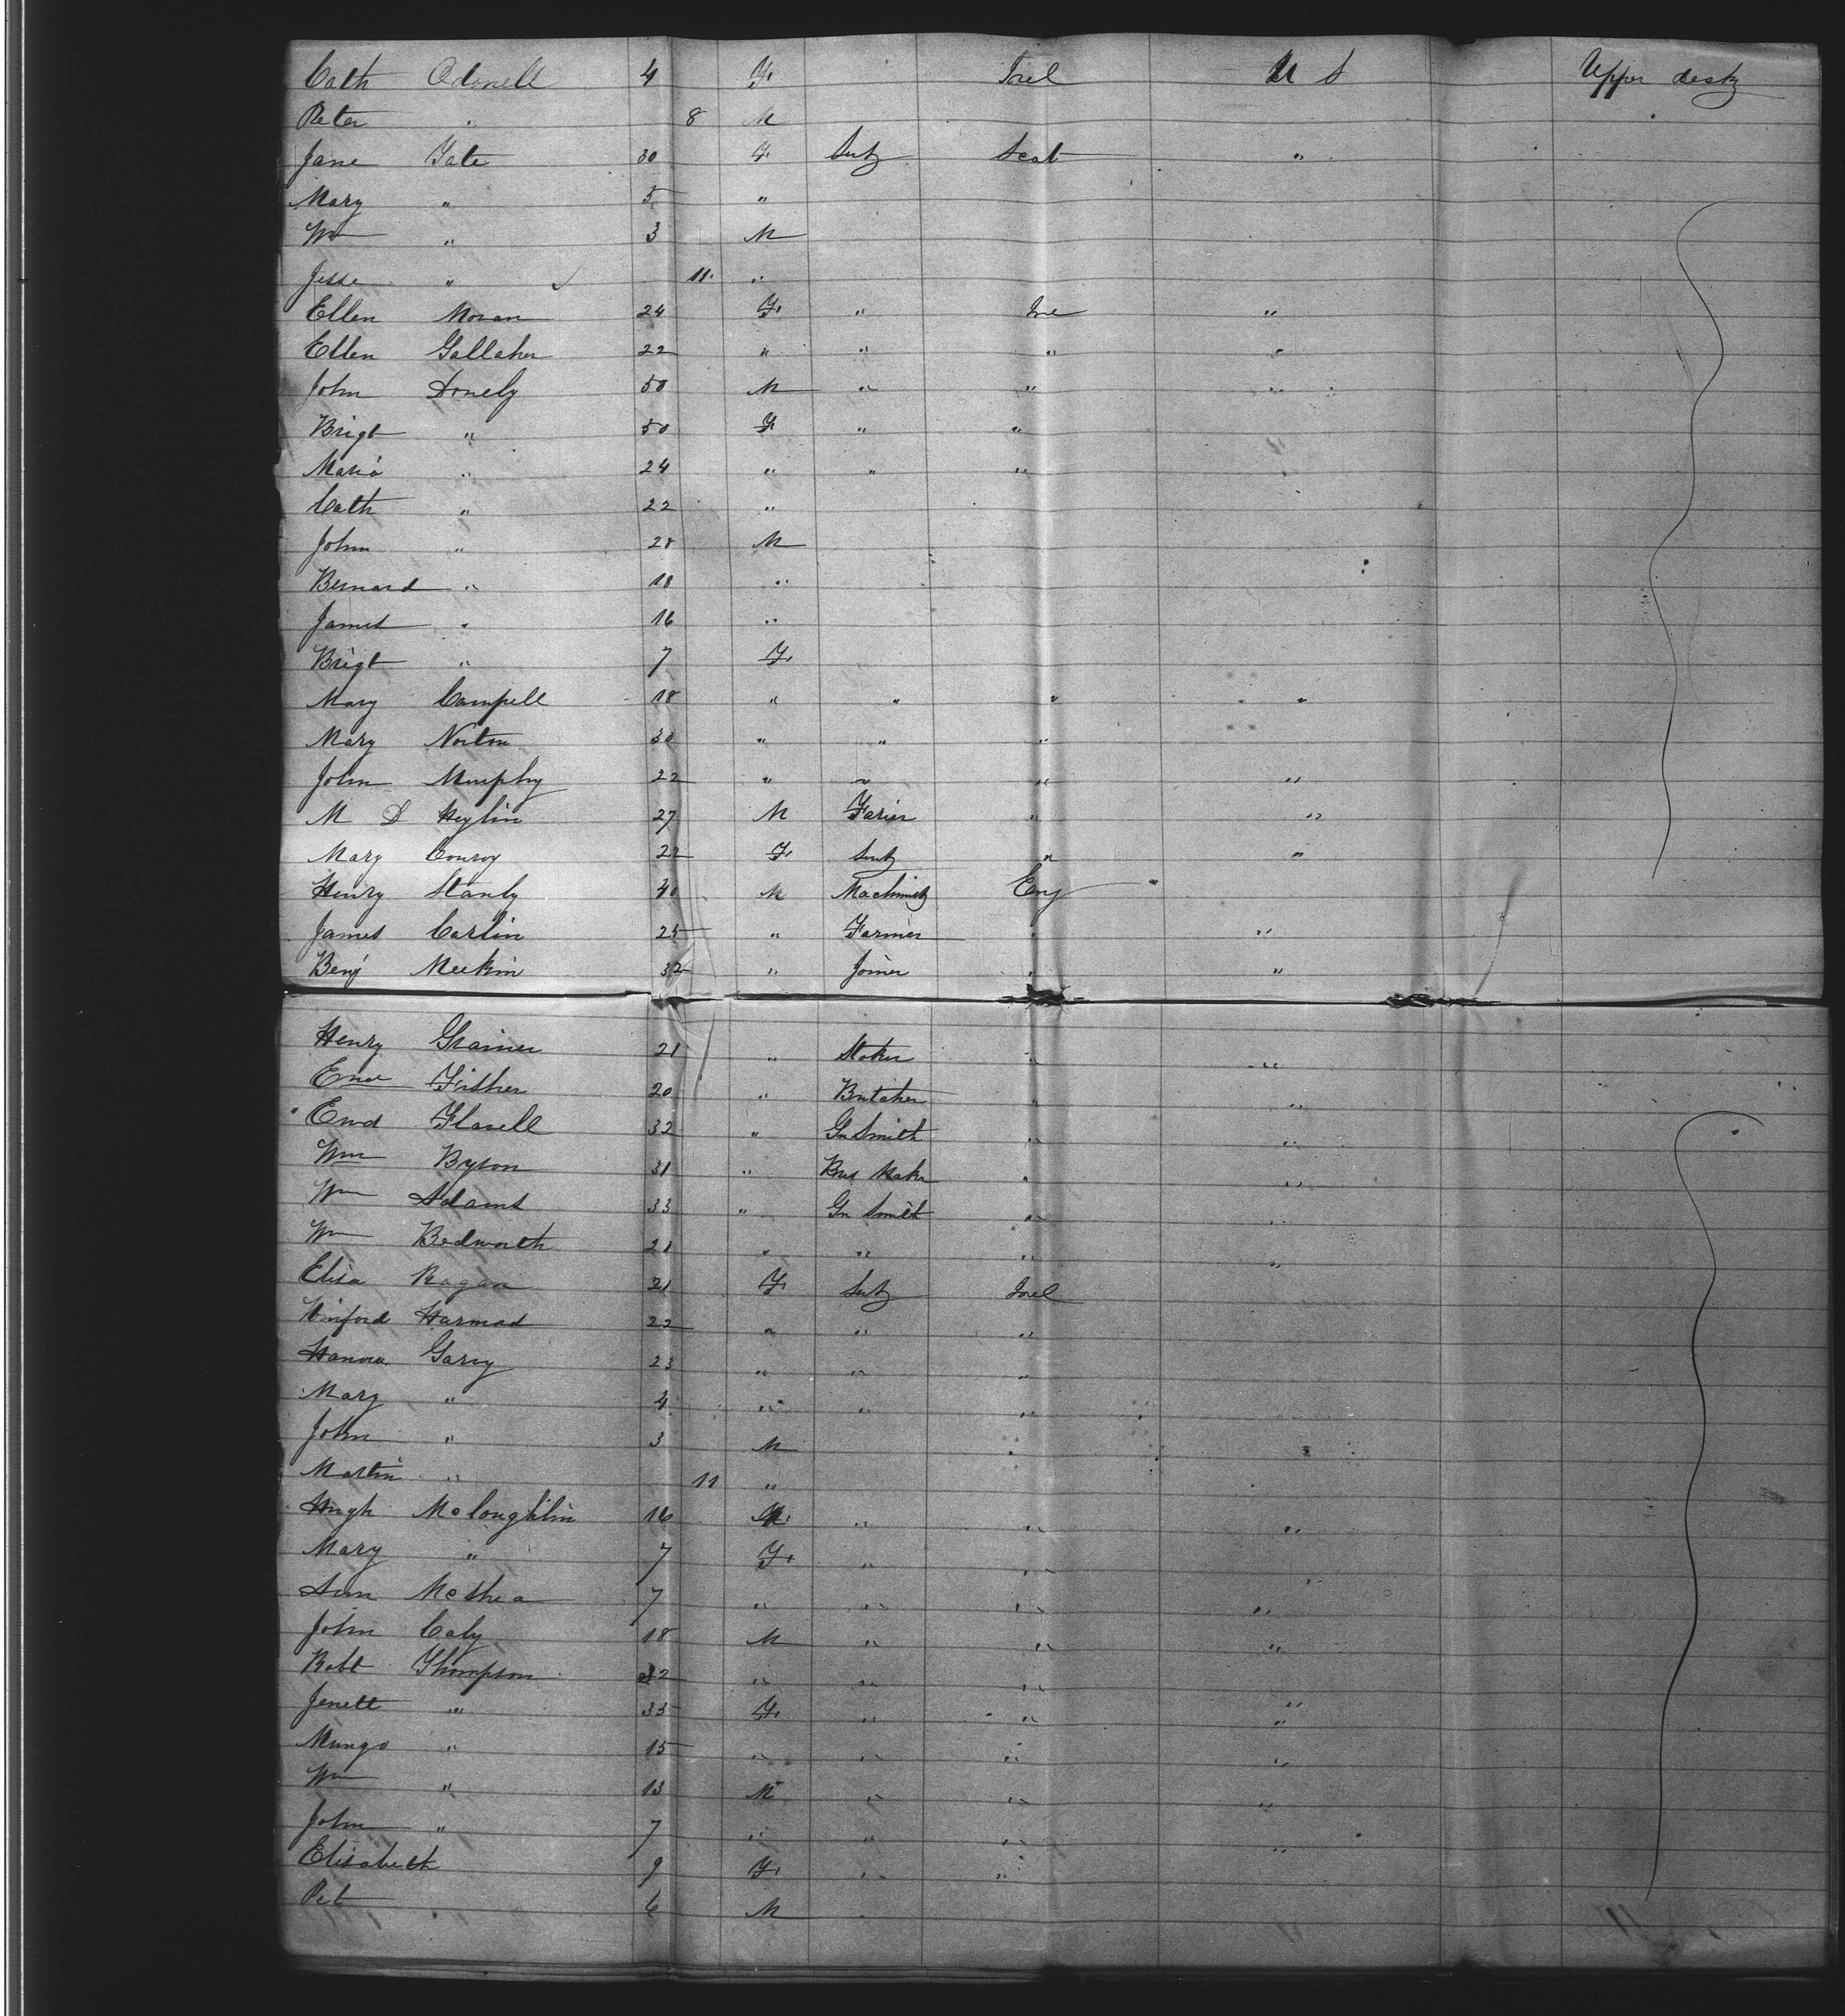 Cath Odonell 4 F. Irel U S Upper deck
Peter " 8 M
Jane Tate 30 F. Scot "
Mary " 5 "
Wm " 3 M
Jesse " 11 "
Ellen Moran 24 F. " Ire "
Ellen Gallaher 22 " " " "
John Donely 50 M " " "
Brigt " 50 F " "
Maria " 24 " " "
Cath " 22 "
John " 28 M
Bernard " 18 "
James " 16 "
Brigt " 7 F.
Mary Campell 18 " " " "
Mary Norton 30 " " "
John Murphy 22 " " " "
M D Heylin 27 M Farier " "
Mary Conroy 22 F. " "
Henry Stanly 40 M Machinist Eng
James Carlin 25 " Farmer " "
Benj Meekin 32 " Joiner " "
Henry Grainer 21 " Stoker " "
Fisher 20 " Butcher " "
Ewd Flavell 32 " Gn Smith " "
Wm Byson 31 " Maker " "
Wm Adams 33 " Gn Smith " "
Wm Bedworth 21 " " " "
Elisa Ragan 21 F. Irel
Winford Harmad 22 " " "
Hanora Gary 23 " " "
Mary " 4 " " "
John " 3 M "
Martin " 11 "
Hugh McLoughlin 16 M. " " "
Mary " 7 F. " " "
Ann McShea 7 " " " "
John Caly 18 M " " "
Robt Thompson 32 " " "
Jenett " 35 F. " " "
Mungo " 15 " " " "
Wm " 13 M " " "
John " 7 " " " "
Elisabeth 9 F. " "
Pet 6 M